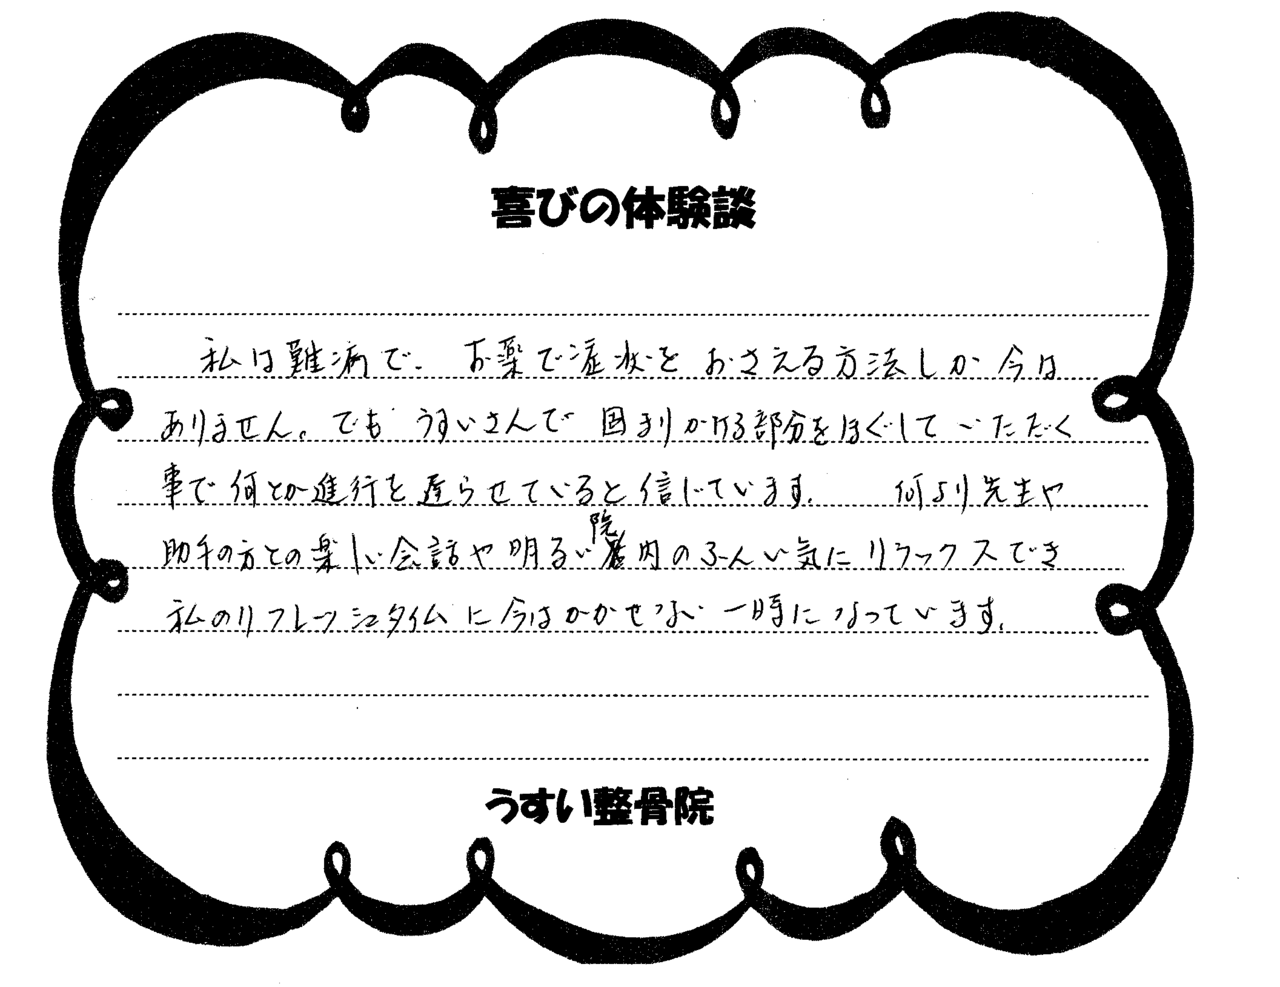 喜びの体験談
私は難病で、お薬で症状をおさえる方法しか今は
ありません。でもうすいさんで固まりかける部分をほぐしていただく
事で何とか進行を遅らせていると信じています。 何より先生や
助手の方との楽しい会話や明るい院内のふんい気にリラックスでき
私のリフレッシュタイムに今はかかせない一時になっています。
うすい整骨院